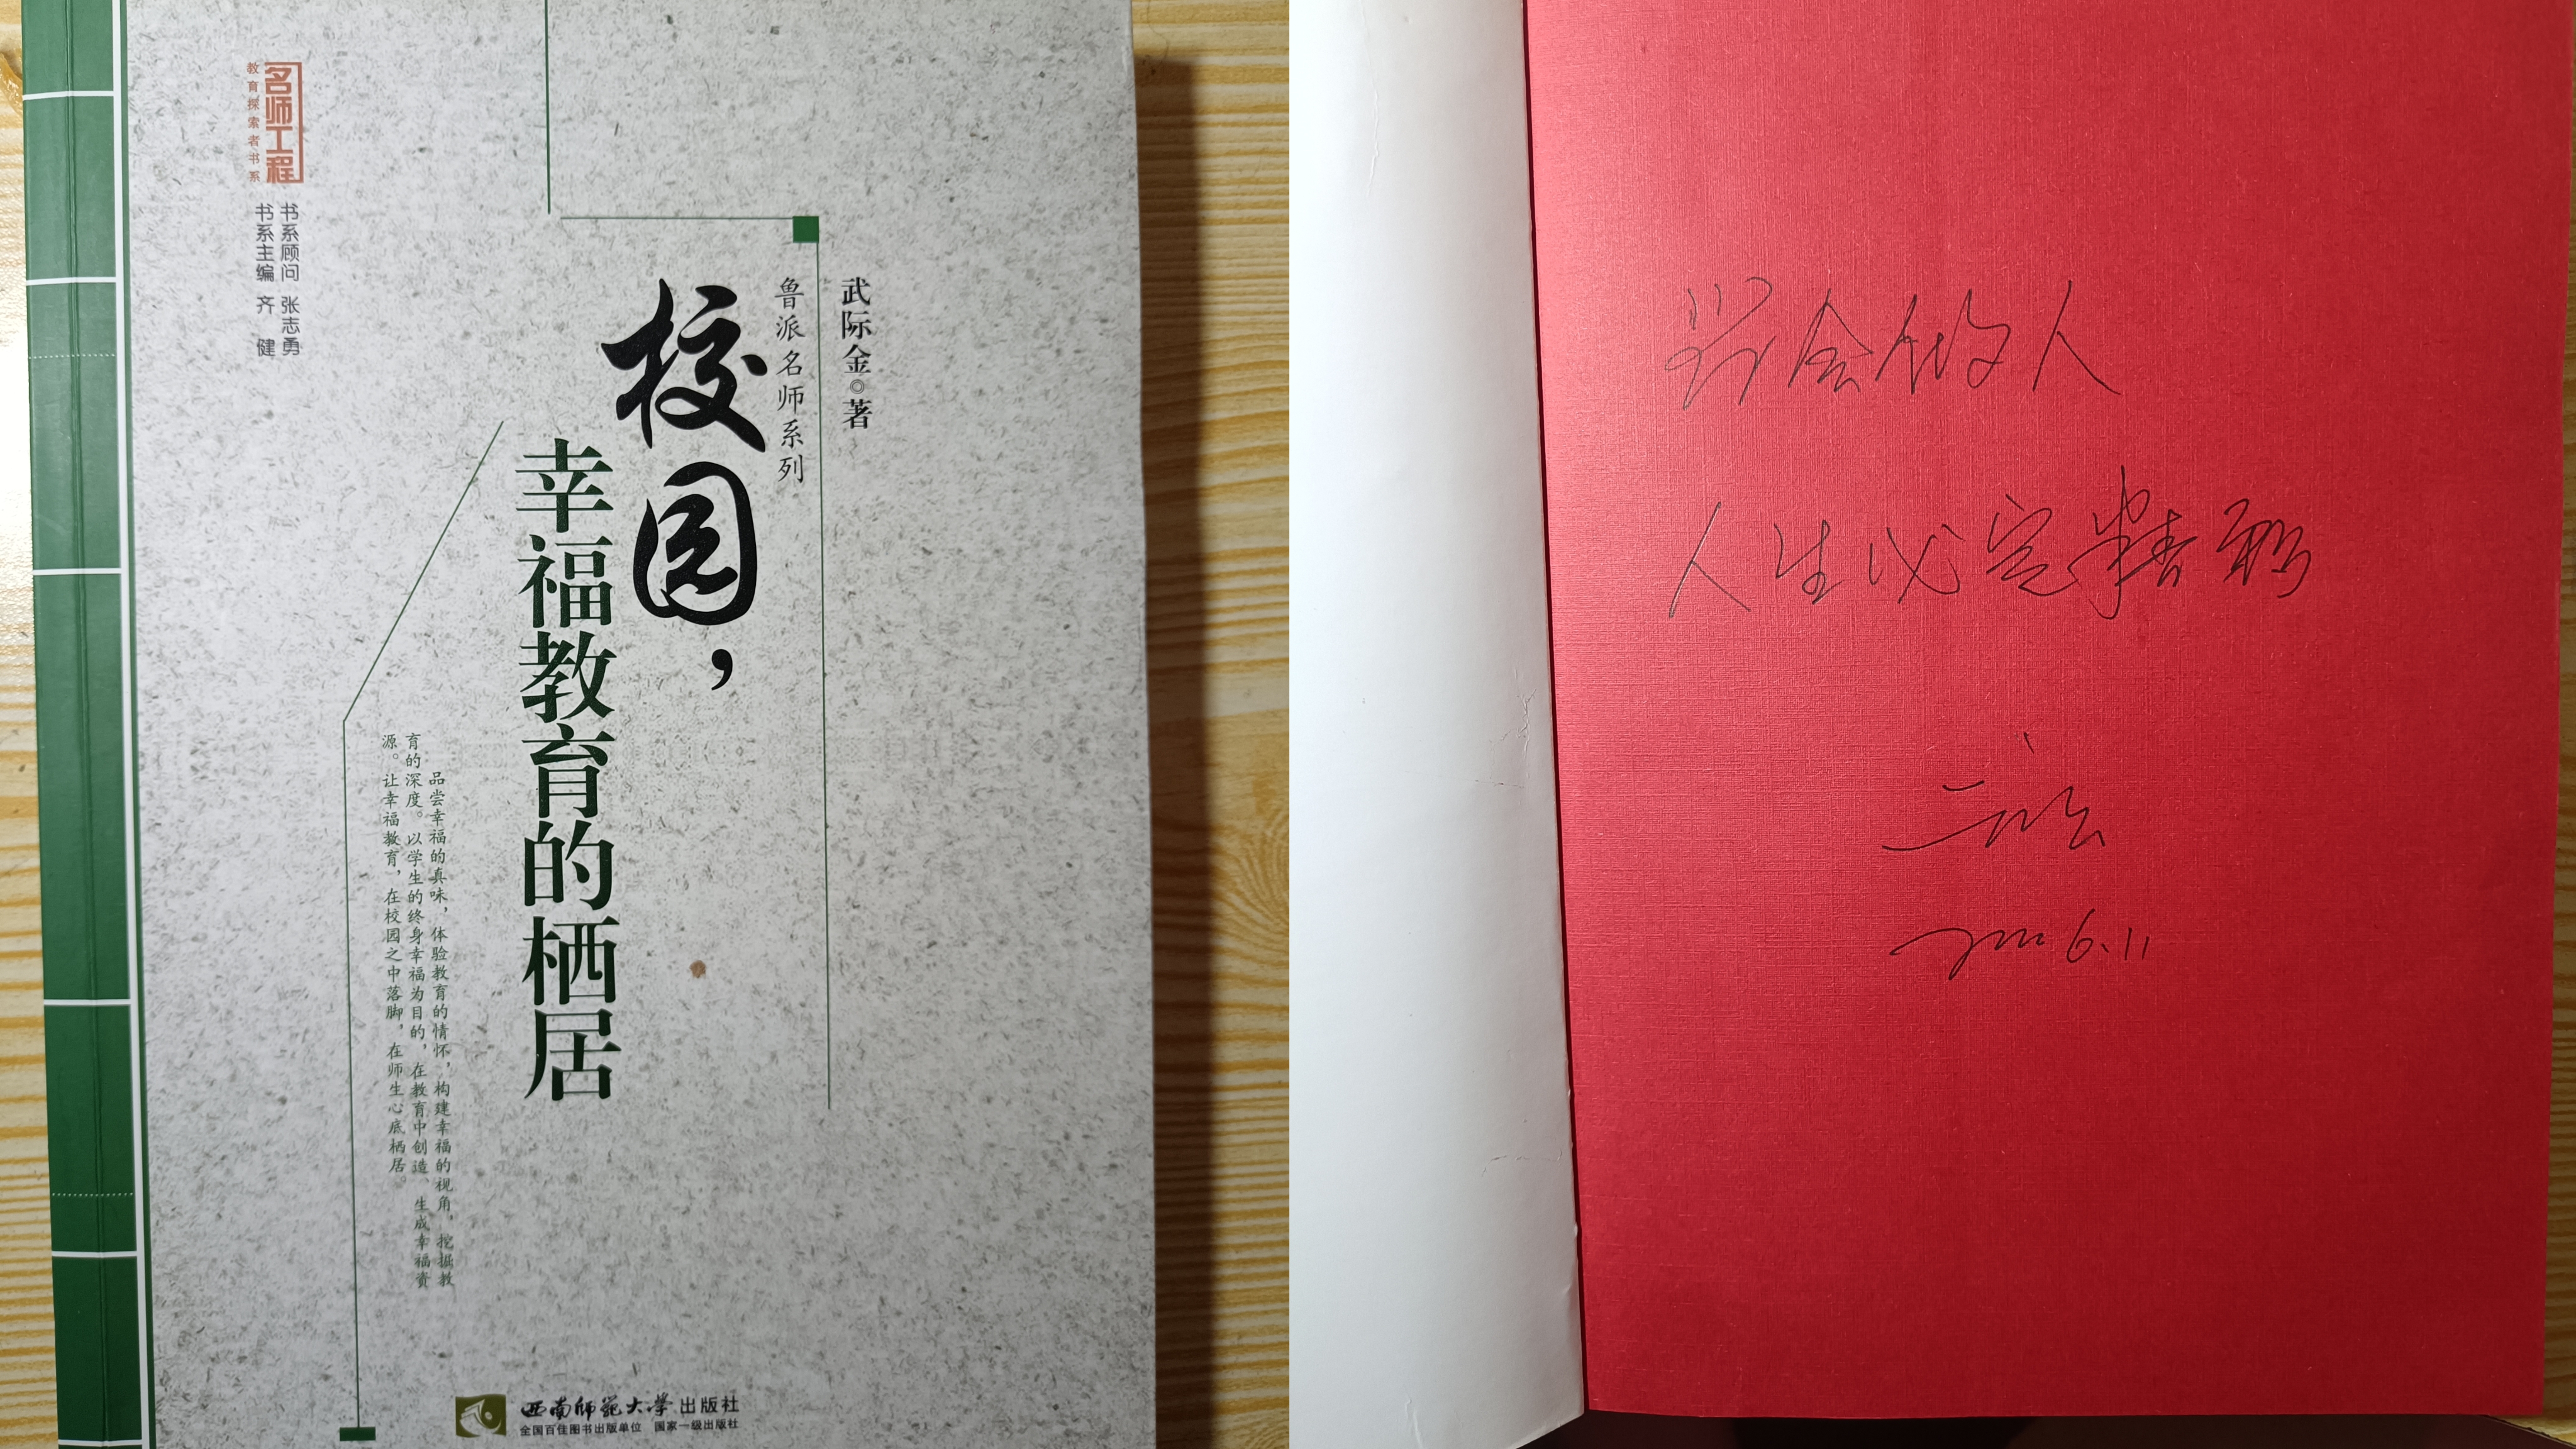 名师工程
教育探索者书系
书系顾问 张志勇
书系主编 齐 健
武际金◎著
鲁派名师系列
校园，
幸福教育的栖居
品尝幸福的真味，体验教育的情怀，构建幸福的视角，挖掘教
育的深度。以学生的终身幸福为目的，在教育中创造、生成幸福资
源。让幸福教育，在校园之中落脚，在师生心底栖居。
西南师范大学出版社
全国百佳图书出版单位 国家一级出版社
学会做人
人生必定精彩
6.11